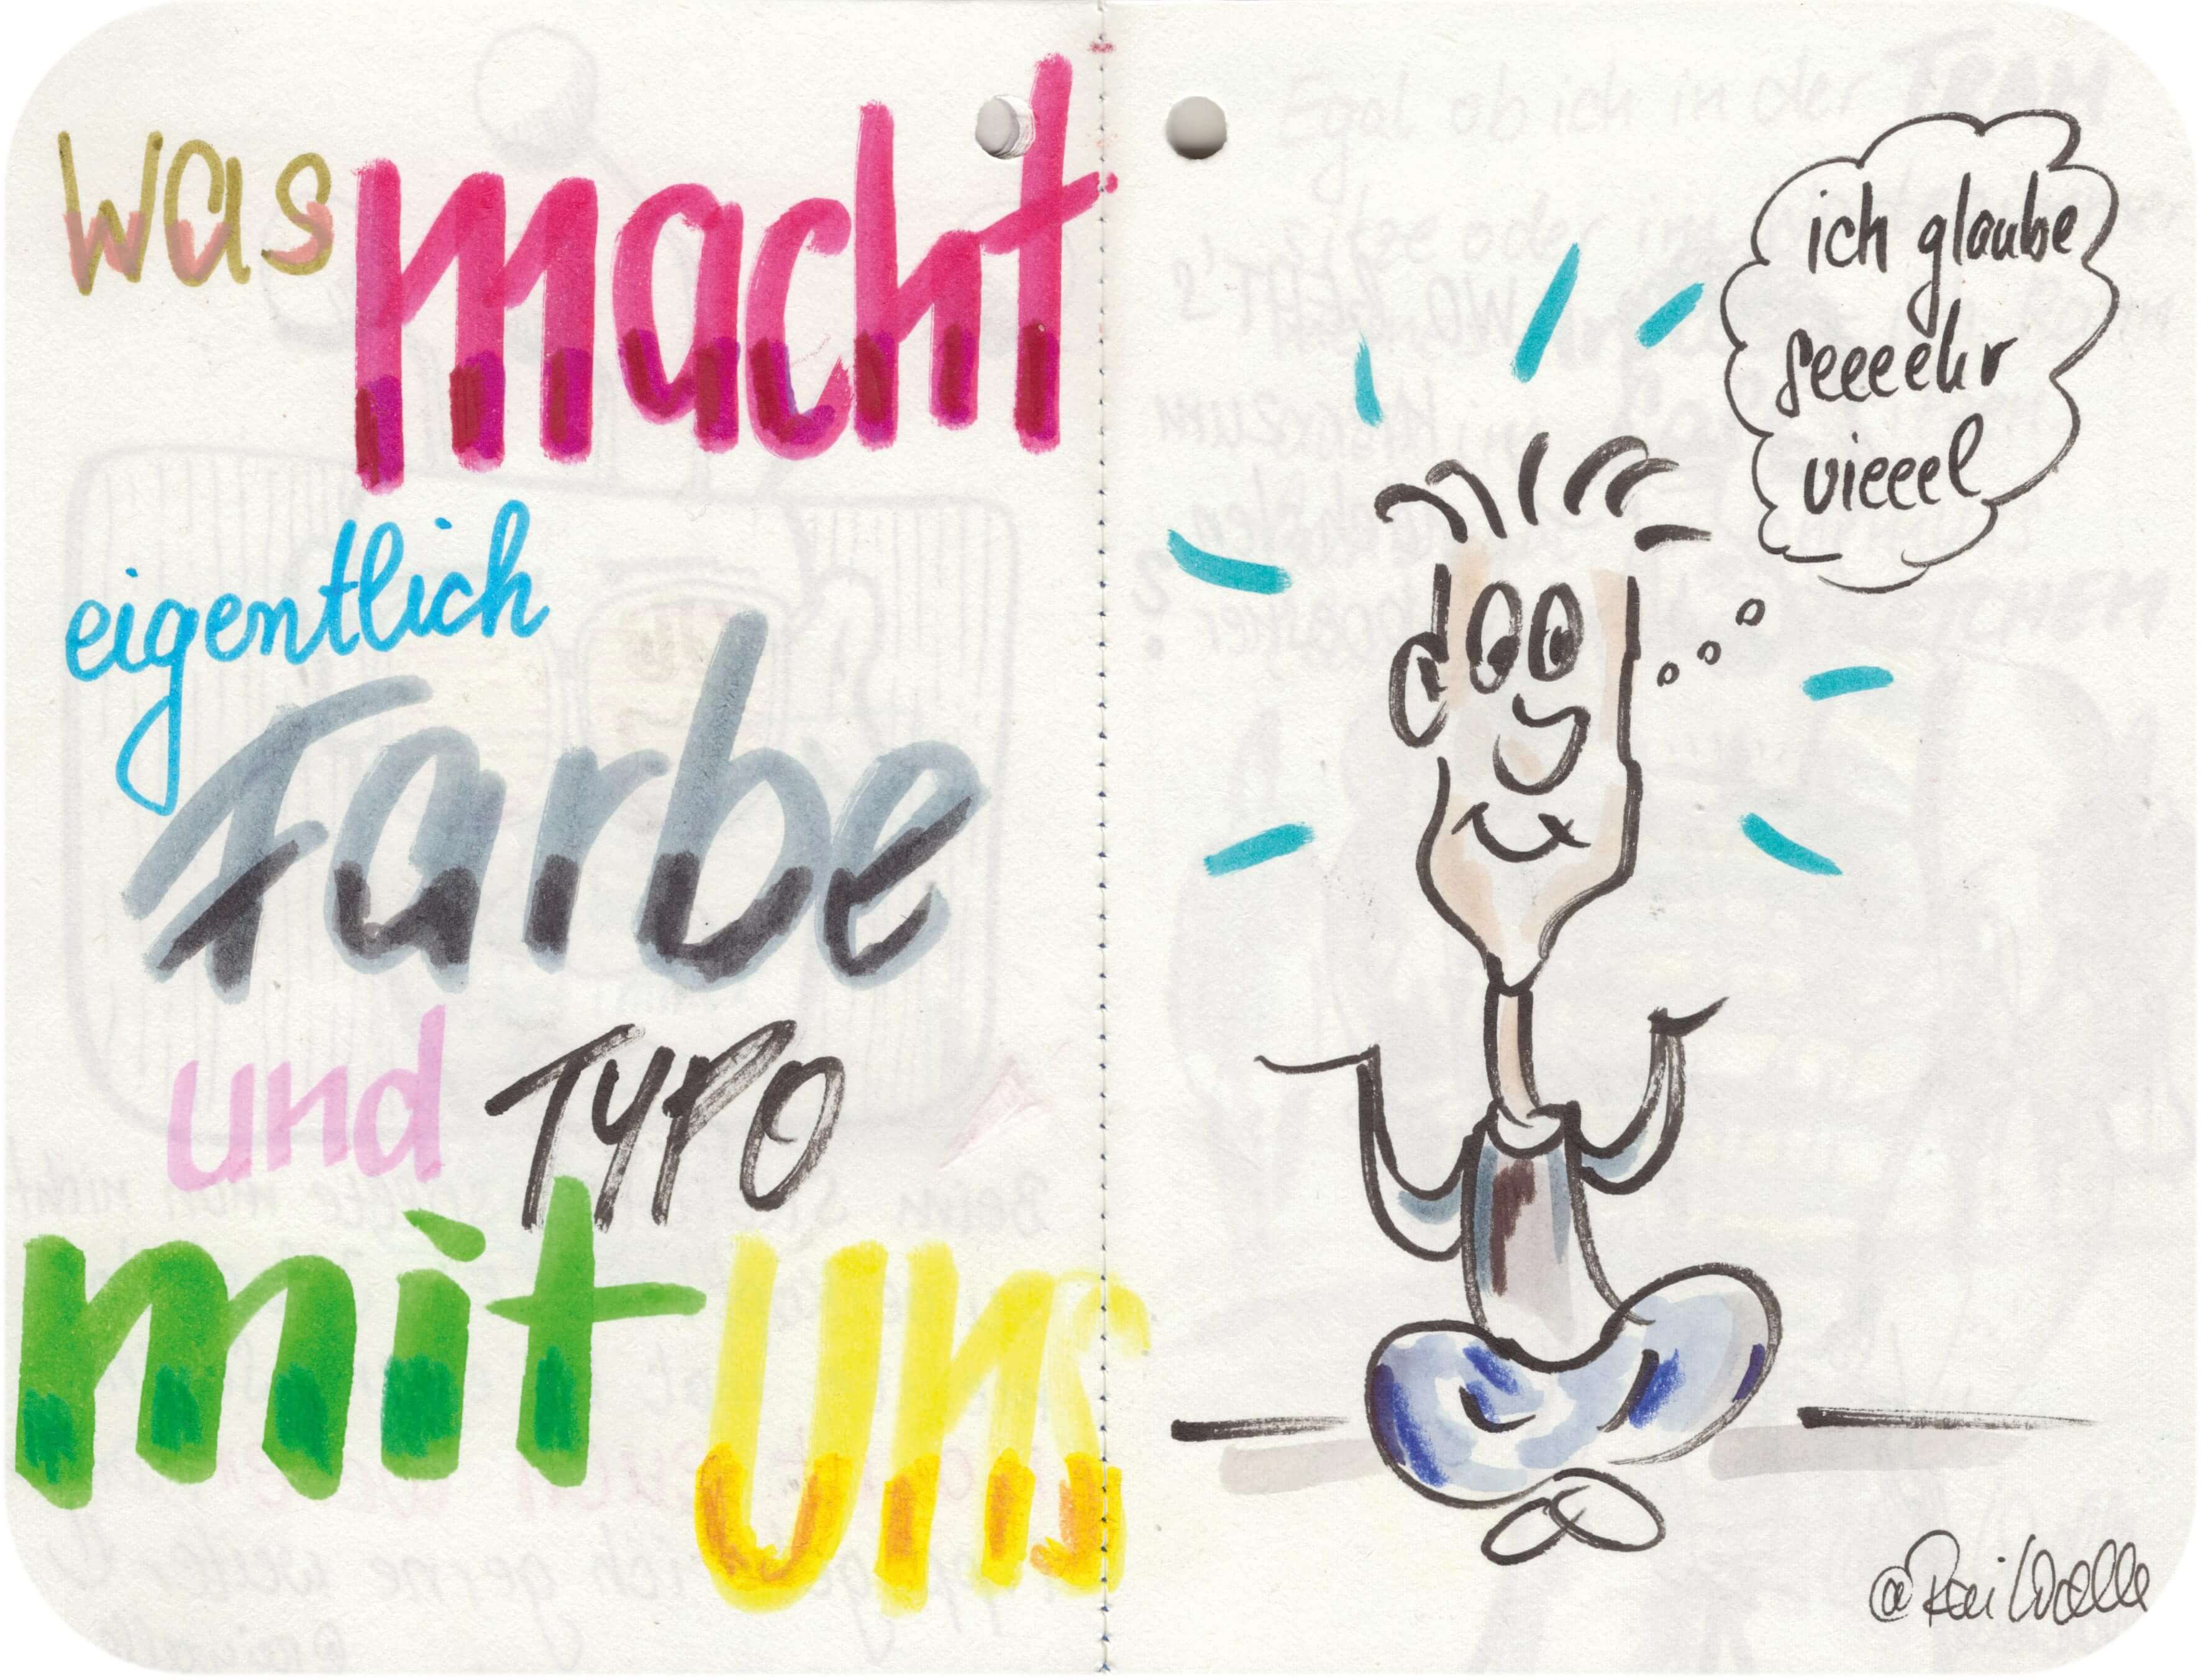 was macht
eigentlich
Farbe
und TYPO
mit uns
ich glaube
seeeehr
vieeel